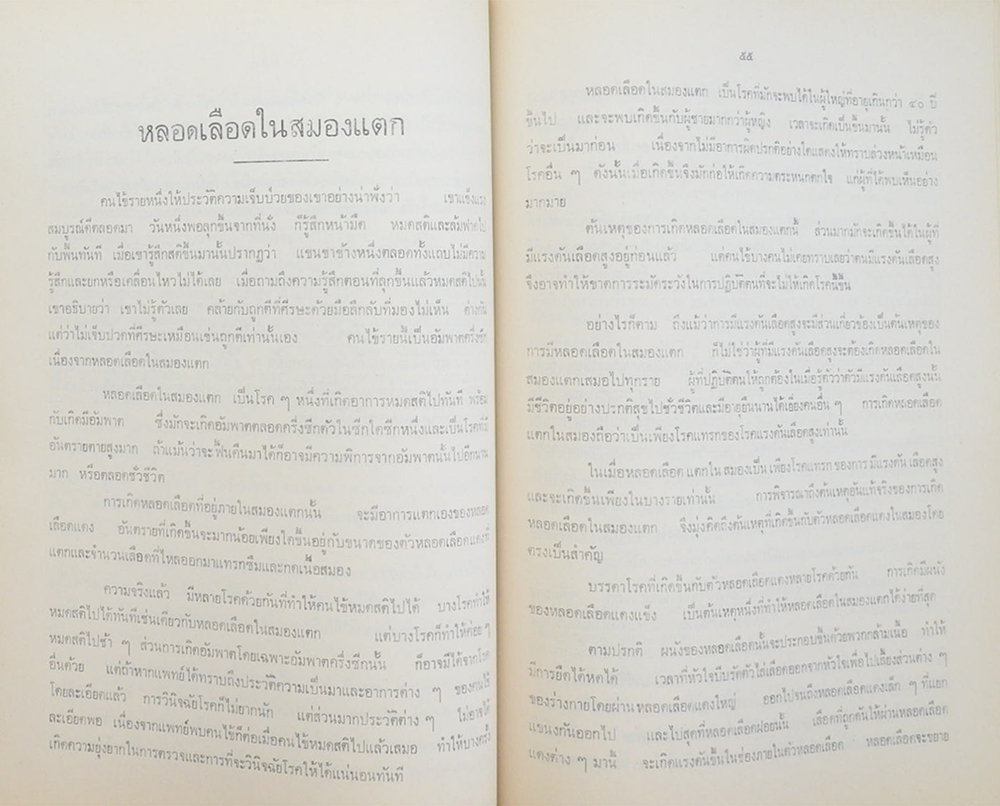 หลอดเลือดในสมองแตก
คนไข้รายหนึ่งให้ประวัติความเจ็บป่วยของเขาอย่างน่าฟังว่า เขาแข็งแรง
สมบูรณ์ดีตลอดมา วันหนึ่งพอลุกขึ้นจากที่นั่ง ก็รู้สึกหน้ามืด หมดสติและล้มฟาดไป
กับพื้นทันที เมื่อเขารู้สึกสติขึ้นมานั้นปรากฏว่า แขนขาข้างหนึ่งตลอดทั้งแถบไม่มีความ
รู้สึกและยกหรือเคลื่อนไหวไม่ได้เลย เมื่อถามถึงความรู้สึกตอนที่ลุกขึ้นแล้วหมดสติไปนั้น
เขาอธิบายว่า เขาไม่รู้ตัวเลย คล้ายกับถูกตีที่ศีรษะด้วยมือลึกลับที่มองไม่เห็น ต่างกัน
แต่ว่าไม่เจ็บปวดที่ศีรษะเหมือนเช่นถูกตีเท่านั้นเอง คนไข้รายนี้เป็นอัมพาตครึ่งซีก
เนื่องจากหลอดเลือดในสมองแตก
หลอดเลือดในสมองแตก เป็นโรค ๆ หนึ่งที่เกิดอาการหมดสติไปทันที พร้อม
กับเกิดมีอัมพาต ซึ่งมักจะเกิดอัมพาตตลอดครึ่งซีกตัวในซีกใดซีกหนึ่งและเป็นโรคที่มี
อันตรายตายสูงมาก ถ้าแม้นว่าจะฟื้นคืนมาได้ก็อาจมีความพิการจากอัมพาตนั้นไปอีกนาน
มาก หรือตลอดชั่วชีวิต
การเกิดหลอดเลือดที่อยู่ภายในสมองแตกนั้น จะมีอาการแตกเองของหลอด
เลือดแดง อันตรายที่เกิดขึ้นจะมากน้อยเพียงใดขึ้นอยู่กับขนาดของตัวหลอดเลือดแดงที่
แตกและจำนวนเลือดที่ไหลออกมาแทรกซึมและกดเนื้อสมอง
ความจริงแล้ว มีหลายโรคด้วยกันที่ทำให้คนไข้หมดสติไปได้ บางโรคทำให้
หมดสติไปได้ทันทีเช่นเดียวกับหลอดเลือดในสมองแตก แต่บางโรคก็ทำให้ค่อย ๆ
หมดสติไปช้า ๆ ส่วนการเกิดอัมพาตโดยเฉพาะอัมพาตครึ่งซีกนั้น ก็อาจมีได้จากโรค
อื่นด้วย แต่ถ้าหากแพทย์ได้ทราบถึงประวัติความเป็นมาและอาการต่าง ๆ ของคนไข้
โดยละเอียดแล้ว การวินิจฉัยโรคก็ไม่ยากนัก แต่ส่วนมากประวัติต่าง ๆ ไม่อาจได้
ละเอียดพอ เนื่องจากแพทย์พบคนไข้ก็ต่อเมื่อคนไข้หมดสติไปแล้วเสมอ ทำให้บางครั้ง
เกิดความยุ่งยากในการตรวจและการที่จะวินิจฉัยโรคให้ได้แน่นอนทันที
๕๕
หลอดเลือดในสมองแตก เป็นโรคที่มักจะพบได้ในผู้ใหญ่ที่อายุเกินกว่า ๔๐ ปี
ขึ้นไป และจะพบเกิดขึ้นกับผู้ชายมากกว่าผู้หญิง เวลาจะเกิดเป็นขึ้นมานั้น ไม่รู้ตัว
ว่าจะเป็นมาก่อน เนื่องจากไม่มีอาการผิดปรกติอย่างใดแสดงให้ทราบล่วงหน้าเหมือน
โรคอื่น ๆ ดังนั้นเมื่อเกิดขึ้นจึงมักก่อให้เกิดความตระหนกตกใจ แก่ผู้ที่ได้พบเห็นอย่าง
มากมาย
ต้นเหตุของการเกิดหลอดเลือดในสมองแตกนี้ ส่วนมากมักจะเกิดขึ้นได้ในผู้ที่
มีแรงดันเลือดสูงอยู่ก่อนแล้ว แต่คนไข้บางคนไม่เคยทราบเลยว่าตนมีแรงดันเลือดสูง
จึงอาจทำให้ขาดการระมัดระวังในการปฏิบัติตนที่จะไม่ให้เกิดโรคนี้ขึ้น
อย่างไรก็ตาม ถึงแม้ว่าการมีแรงดันเลือดสูงจะมีส่วนเกี่ยวข้องเป็นต้นเหตุของ
การมีหลอดเลือดในสมองแตก ก็ไม่ใช่ว่าผู้ที่มีแรงดันเลือดสูงจะต้องเกิดหลอดเลือดใน
สมองแตกเสมอไปทุกราย ผู้ที่ปฏิบัติตนให้ถูกต้องในเมื่อรู้ตัวว่าตัวมีแรงดันเลือดสูงนั้น
มีชีวิตอยู่อย่างปรกติสุขไปชั่วชีวิตและมีอายุยืนนานได้เยี่ยงคนอื่น ๆ การเกิดหลอดเลือด
แตกในสมองถือว่าเป็นเพียงโรคแทรกของโรคแรงดันเลือดสูงเท่านั้น
ในเมื่อหลอดเลือด แตกใน สมองเป็น เพียงโรคแทรก ของการ มีแรงดัน เลือดสูง
และจะเกิดขึ้นเพียงในบางรายเท่านั้น การพิจารณาถึงต้นเหตุอันแท้จริงของการเกิด
หลอดเลือดในสมองแตก จึงมุ่งคิดถึงต้นเหตุที่เกิดขึ้นกับตัวหลอดเลือดแดงในสมองโดย
ตรงเป็นสำคัญ
บรรดาโรคที่เกิดขึ้นกับตัวหลอดเลือดแดงหลายโรคด้วยกัน การเกิดมีผนัง
ของหลอดเลือดแดงแข็ง เป็นต้นเหตุหนึ่งที่ทำให้หลอดเลือดในสมองแตกได้ง่ายที่สุด
ตามปรกติ ผนังของหลอดเลือดนั้นจะประกอบขึ้นด้วยพวกกล้ามเนื้อ ทำให้
มีการยืดได้หดได้ เวลาที่หัวใจบีบรัดตัวไล่เลือดออกจากหัวใจเพื่อไปเลี้ยงส่วนต่าง ๆ
ของร่างกายโดยผ่านหลอดเลือดแดงใหญ่ ออกไปจนถึงหลอดเลือดแดงเล็ก ๆ ที่แยก
แขนงกันออกไป และไปสุดที่หลอดเลือดฝอยนั้น เลือดที่ถูกดันให้ผ่านหลอดเลือด
แดงต่าง ๆ มานี้ จะเกิดแรงดันขึ้นในช่องภายในตัวหลอดเลือด หลอดเลือดจะขยาย